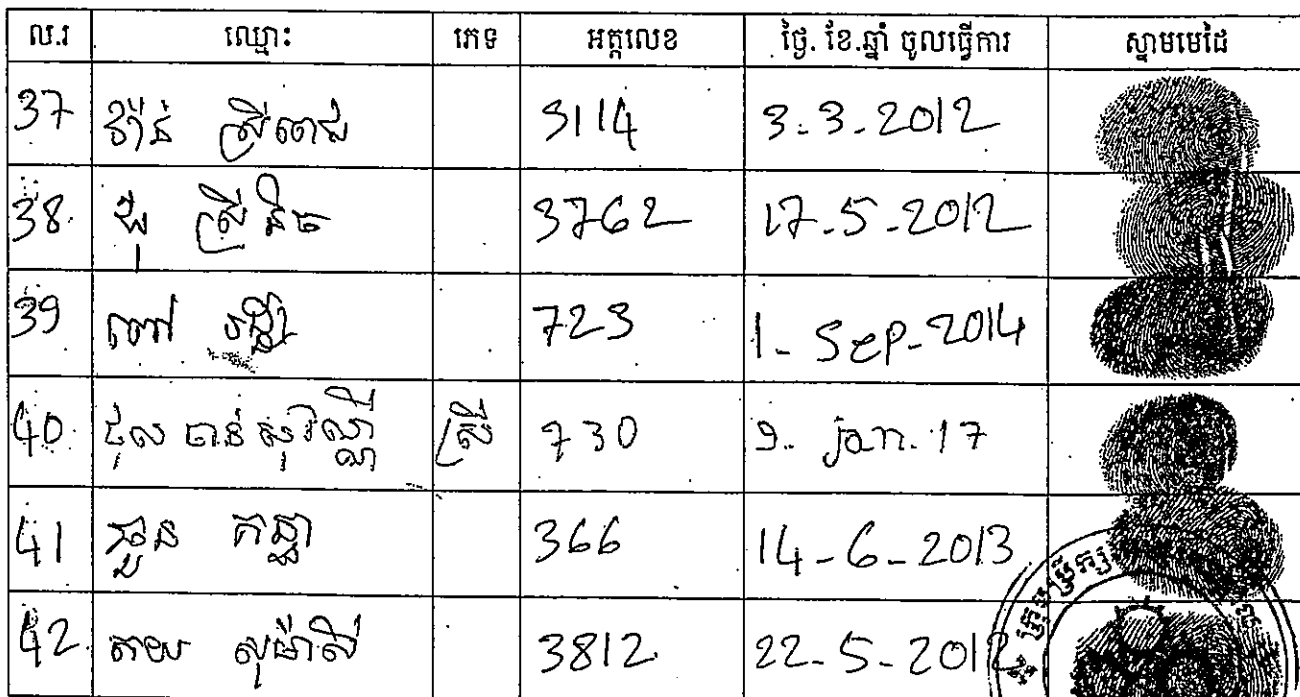 ល.រ ឈ្មោះ ភេទ អត្តលេខ ថ្ងៃ. ខែ.ឆ្នាំ ចូលធ្វើការ ស្នាមមេដៃ
37 វ៉ាន់ ស្រីពេជ 3114 3.3.2012
38. ស្រីនិច 3762 17-5-2012
39 ពៅ 723 1-Sep-2014
40. ជុល ចាន់សុវណ្ណី ស្រី 730 9. jan. 17
41 ឆួន កន្នា 366 14-6-2013
42. តាយ សុម៉ាលី 3812 22-5-2012